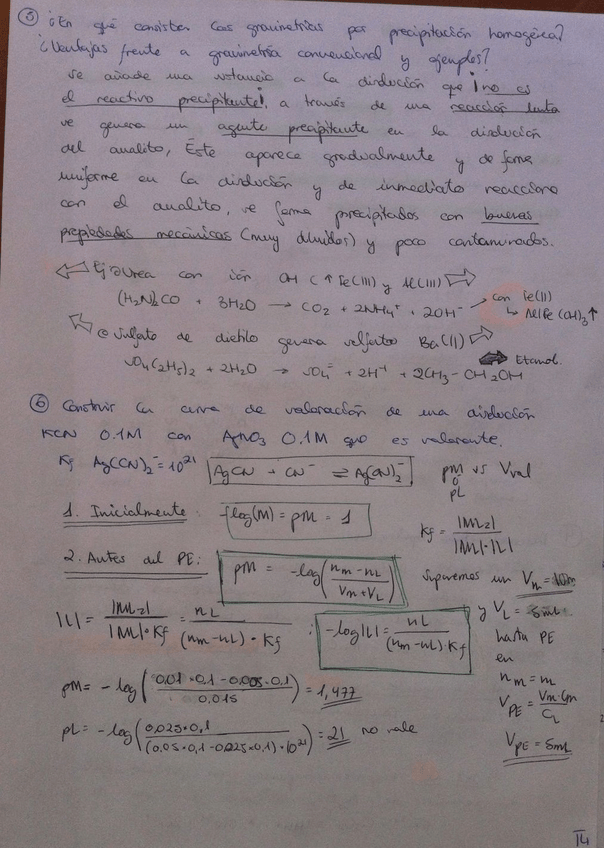 ⑤ ¿En qué consisten las gravimetrías por precipitación homogénea?
¿Ventajas frente a gravimetría convencional y ejemplos?
Se añade una sustancia a la disolución que ¡no es
el reactivo precipitante!, a través de una reacción lenta
se genera un agente precipitante en la disolución
del analito, Éste aparece gradualmente y de forma
uniforme en la disolución y de inmediato reacciona
con el analito, se forma precipitados con buenas
propiedades mecánicas (muy diluidos) y poco contaminados.
Ej: Urea con ión OH (↑ Fe(III) y Al(III))
(H₂N)₂CO + 3H₂O → CO₂ + 2NH₄⁺ + 2OH⁻ → con Fe(II)
↳ Al/Fe(OH)₃↑
Sulfato de dietilo genera sulfatos Ba(II)
SO₄(C₂H₅)₂ + 2H₂O → SO₄⁼ + 2H⁺ + 2CH₃-CH₂OH
Etanol.
⑥ Construir la curva de valoración de una disolución
KCN 0.1M con AgNO₃ 0.1M que es valorante.
Kf Ag(CN)₂⁻ = 10²¹
AgCN + CN⁻ ⇌ Ag(CN)₂⁻
pM vs Vval
o
pL
1. Inicialmente:
-log(M) = pM = 1
Kf = |ML₂| / |M|·|L|
2. Antes del PE:
pM = -log((nm - nL)/(Vm + VL))
Suparemos un Vm = 10m
|L| = |ML₂| / |M|·Kf = nL / (nm-nL)·Kf ;
-log|L| = nL / (nm-nL)·Kf
y VL = 5mL
hasta PE
en
nm = m
VPE = Vm·Cm / CL
VPE = 5mL
pM = -log((0,01·0,1 - 0,005·0,1)/0,015) = 1,477
pL = -log(0,025·0,1/((0,05·0,1 - 0,025·0,1)·10²¹)) = 21 no vale
14